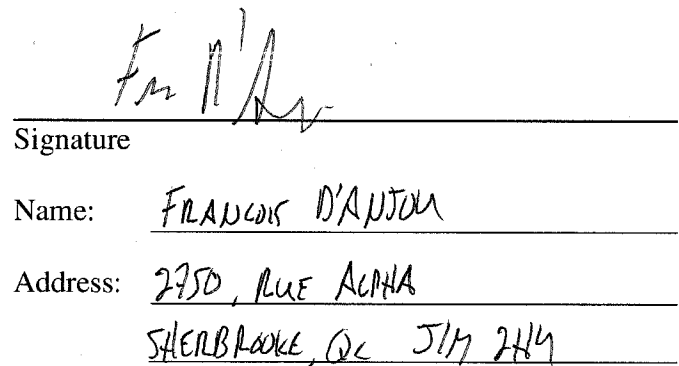 Fra D'An
Signature
Name: FRANCOIS D'ANJOU
Address: 2750, RUE ALPHA
SHERBROOKE, QC J1M 2H4